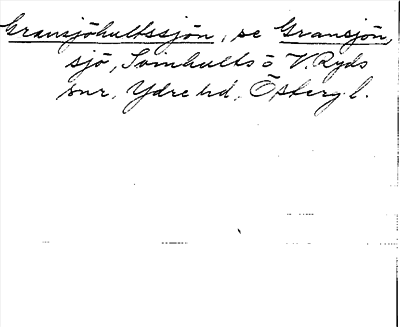 Gransjöhultssjön, se Gransjön,
sjö, Somhults ö V. Ryds
snr, Ydre hd, Östergl.